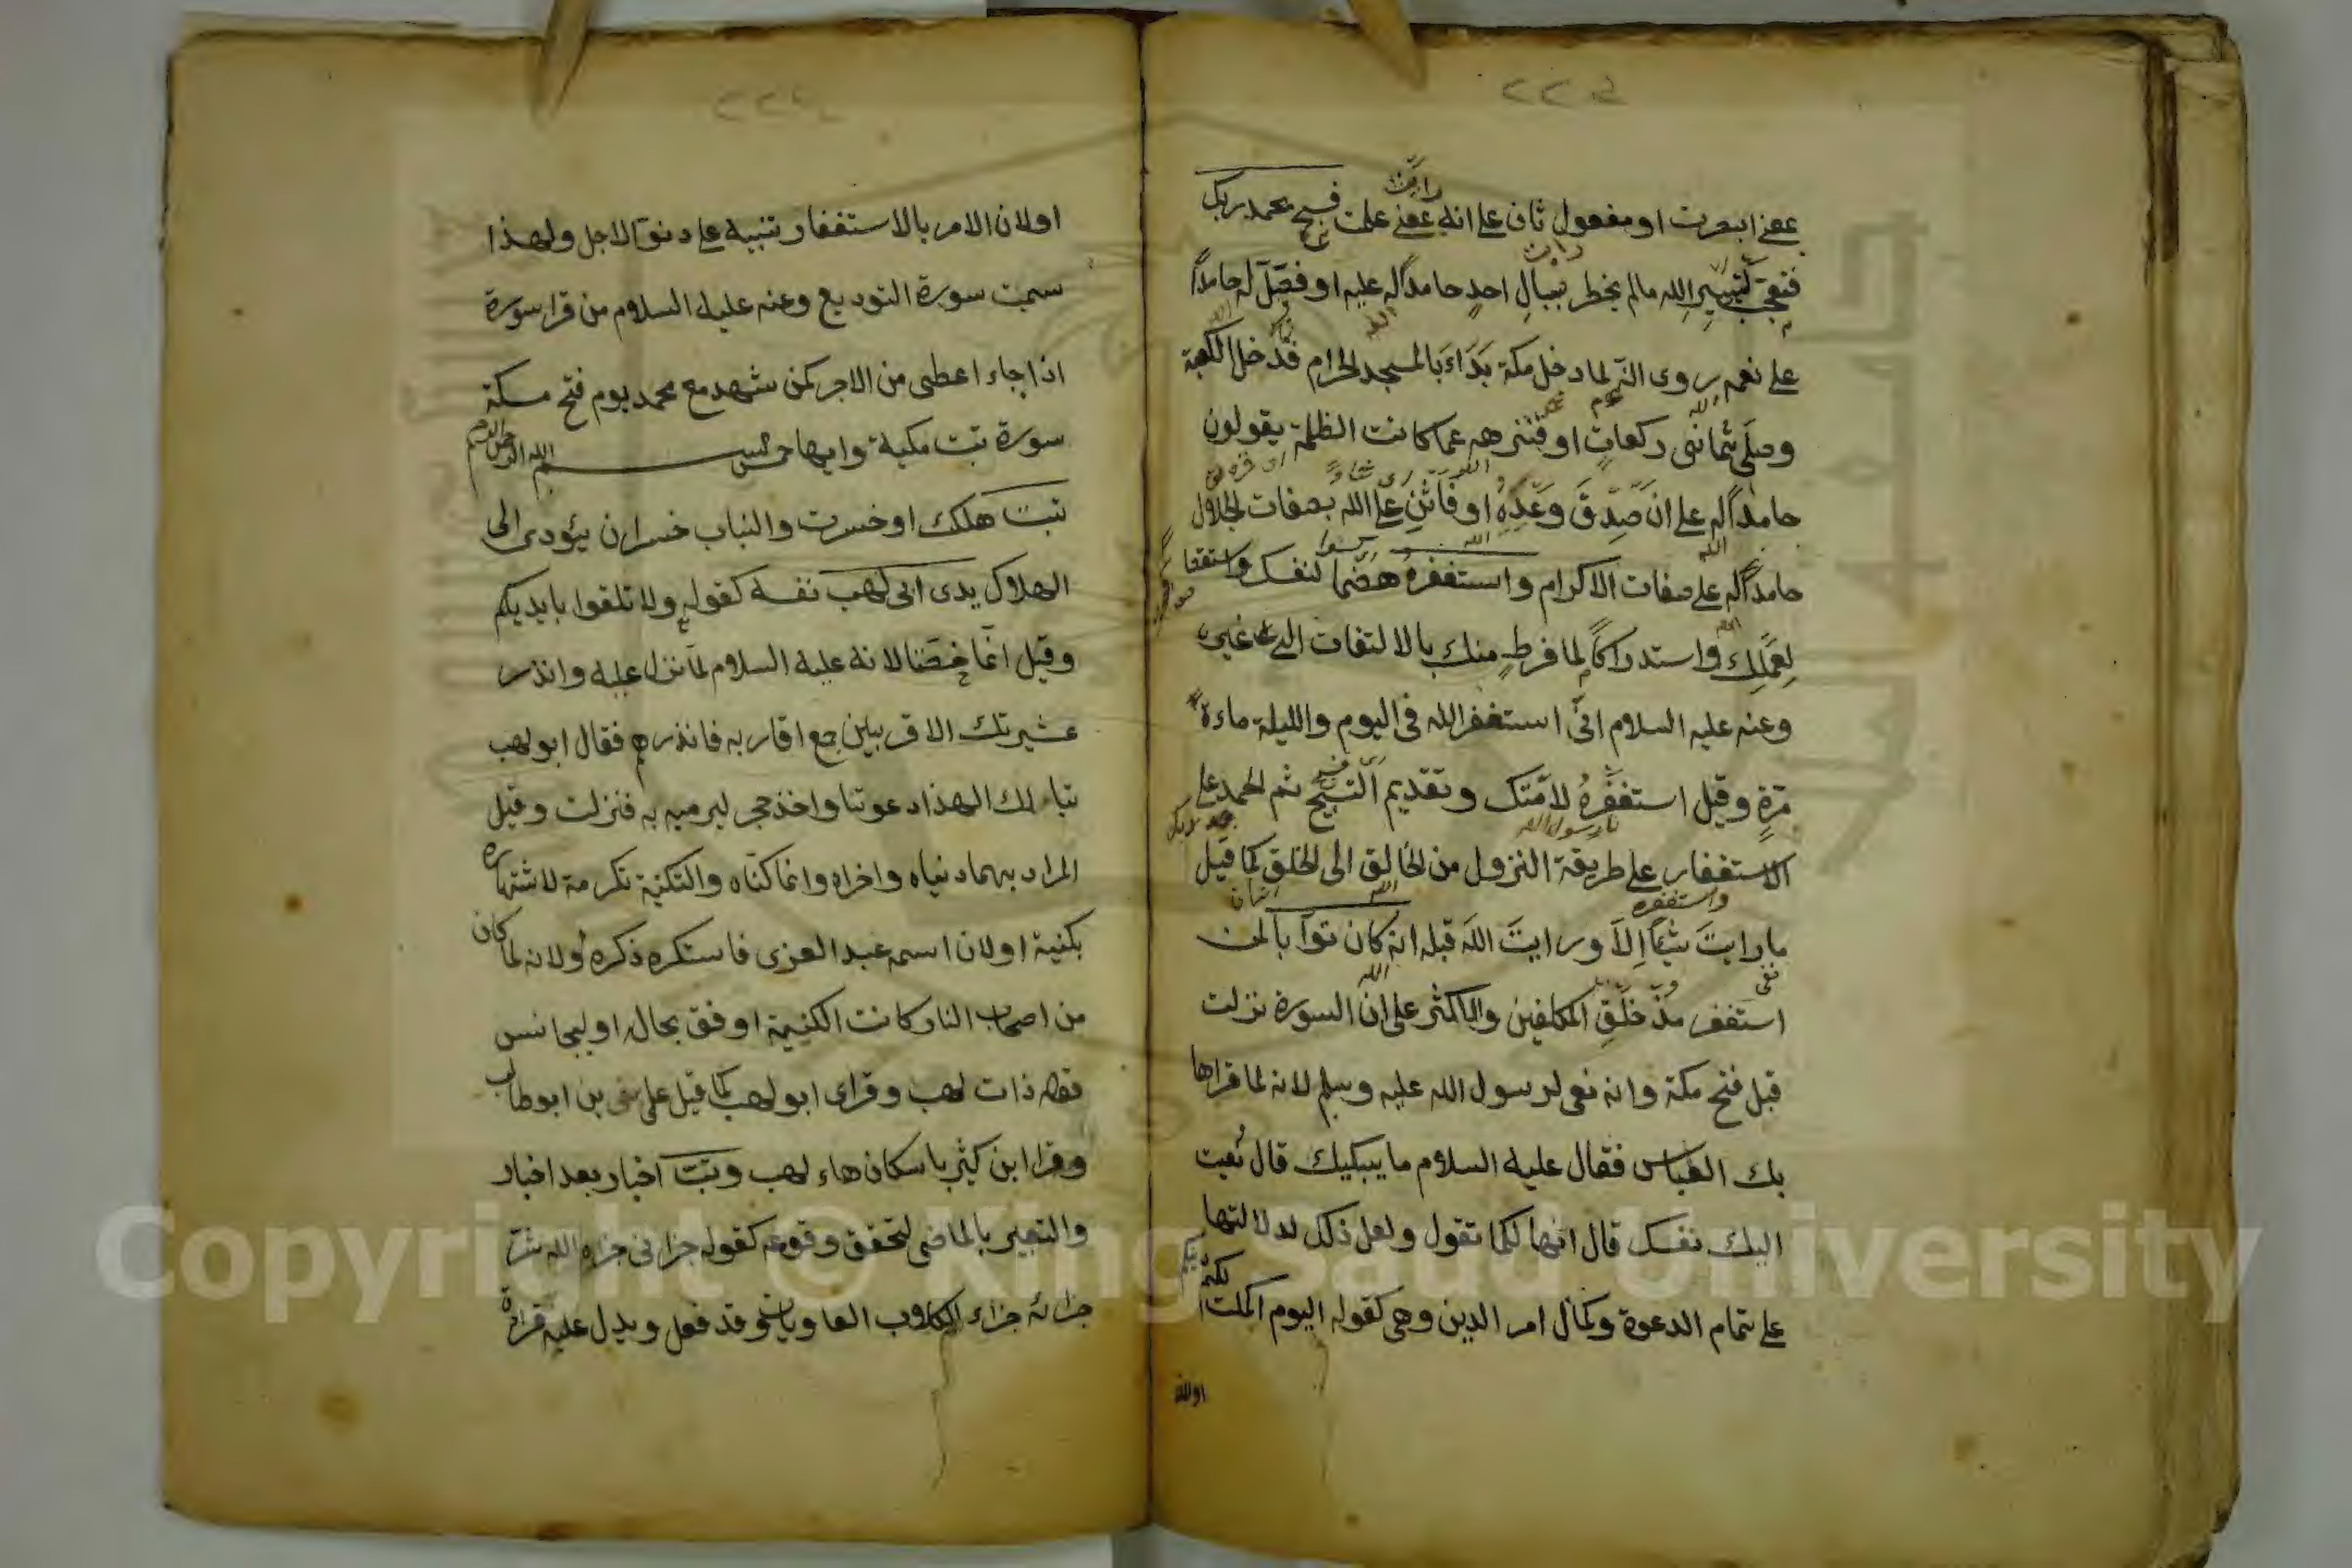 بمعنى ابصرت او مفعول ثان على انه بمعنى علمت فسبح بحمد ربك
فتعجب لتيسير الله مالم يخطر ببال احد حامدا له عليه او فصل له حامدا
على نعمه روى انه لما دخل مكة بداء بالمسجد الحرام فدخل الكعبة
وصلى ثمانى ركعات او فنزهه عما كانت الظلمة يقولون
حامدا له على ان صدق وعده او فاثن على الله بصفات الجلال
حامدا له على صفات الاكرام واستغفره هضما لنفسك واستقصارا
لعملك واستدراكا لما فرط منك بالالتفات الى غيره
وعنه عليه السلام انى استغفر الله فى اليوم والليلة ماءة
مرة وقيل استغفره لامتك وتقديم التسبيح ثم الحمد على
الاستغفار على طريقة النزول من الخالق الى الخلق كما قيل
ما رايت شيئا الا ورايت الله قبله انه كان توابا لمن
استغفر مذ خلق المكلفين والاكثر على ان السورة نزلت
قبل فتح مكة وانه نعى لرسول الله عليه وسلم لانه لما قراها
بك العباس فقال عليه السلام ما يبكيك قال نعيت
اليك نفسك قال انها لكما تقول ولعل ذلك لدلالتها
على تمام الدعوة وكمال امر الدين وهى كقوله اليوم اكملت لكم دينكم
او لان الامر بالاستغفار تنبيه على دنو الاجل ولهذا
سميت سورة التوديع وعنه عليه السلام من قرا سورة
اذا جاء اعطى من الاجر كمن شهد مع محمد يوم فتح مكة
سورة تبت مكية وايها خمس بسم الله الرحمن الرحيم
تبت هلكت او خسرت والتباب خسران يؤدى الى
الهلاك يدى ابى لهب نفسه كقوله ولا تلقوا بايديكم
وقيل انما خصتا لانه عليه السلام لما نزل عليه وانذر
عشيرتك الاقربين جمع اقاربه فانذرهم فقال ابو لهب
تبا لك الهذا دعوتنا واخذ حجر ليرميه به فنزلت وقيل
المراد بهما دنياه واخراه وانما كناه والتكنية تكرمة لاشتهاره
بكنية او لان اسمه عبد العزى فاستكره ذكره او لانه لما كان
من اصحاب النار كانت الكنية اوفق بحاله او ليجانس
قوله ذات لهب وقراى ابو لهب كما قيل على بن ابو طالب
وقرا ابن كثير باسكان هاء لهب وتبت اخبار بعد اخبار
والتعبير بالماضى لتحقق وقوعه كقوله جزانى جزاه الله شر
جزائه جزاء الكلاب العاويات وقد فعل ويدل عليه قراءة